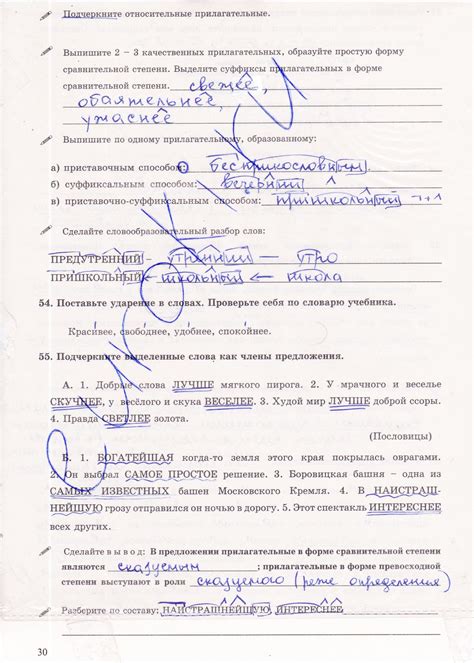 Подчеркните относительные прилагательные.
Выпишите 2 – 3 качественных прилагательных, образуйте простую форму
сравнительной степени. Выделите суффиксы прилагательных в форме
сравнительной степени. свежее,
обаятельнее,
ужаснее
Выпишите по одному прилагательному, образованному:
а) приставочным способом: беспрекословным.
б) суффиксальным способом: вечерний
в) приставочно-суффиксальным способом: пришкольный
Сделайте словообразовательный разбор слов:
ПРЕДУТРЕННИЙ – утренний – утро
ПРИШКОЛЬНЫЙ ← школьный ← школа
54. Поставьте ударение в словах. Проверьте себя по словарю учебника.
Краси́вее, свобо́днее, удо́бнее, споко́йнее.
55. Подчеркните выделенные слова как члены предложения.
А. 1. Добрые слова ЛУЧШЕ мягкого пирога. 2. У мрачного и веселье
СКУЧНЕЕ, у весёлого и скука ВЕСЕЛЕЕ. 3. Худой мир ЛУЧШЕ доброй ссоры.
4. Правда СВЕТЛЕЕ золота.
(Пословицы)
Б. 1. БОГАТЕЙШАЯ когда-то земля этого края покрылась оврагами.
2. Он выбрал САМОЕ ПРОСТОЕ решение. 3. Боровицкая башня – одна из
САМЫХ ИЗВЕСТНЫХ башен Московского Кремля. 4. В НАИСТРАШ-
НЕЙШУЮ грозу отправился он ночью в дорогу. 5. Этот спектакль ИНТЕРЕСНЕЕ
всех других.
Сделайте в ы в о д: В предложении прилагательные в форме сравнительной степени
являются сказуемым; прилагательные в форме превосходной
степени выступают в роли сказуемого (реже определения)
Разберите по составу: НАИСТРАШНЕЙШУЮ, ИНТЕРЕСНЕЕ
30